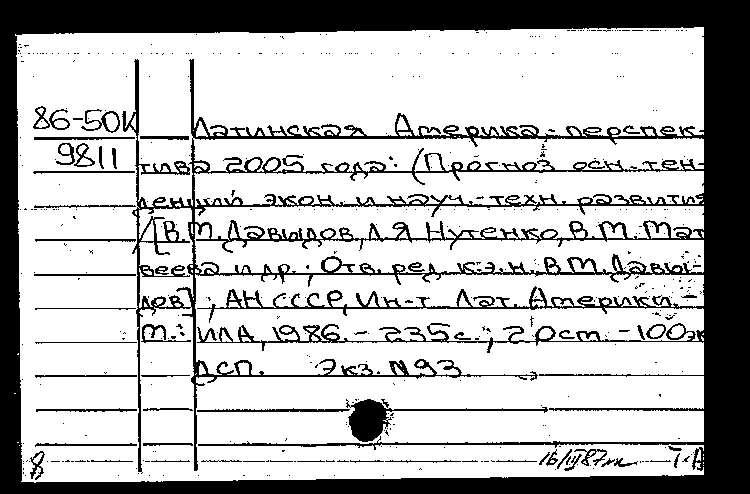 86-50К Латинская Америка - перспек-
9811 тива 2005 года: (Прогноз осн. тен-
денций экон. и науч.-техн. развития
/[В.М. Давыдов, Л.Я Нутенко, В.М. Мат
веева и др.; Отв. ред. к.э.н. В.М. Давы-
дов]; АН СССР, Ин-т Лат. Америки. -
М.: ИЛА, 1986. - 235 с.; 20 см. - 100 эк
ДСП. Экз. N 93
8 16/III 87 Т.А